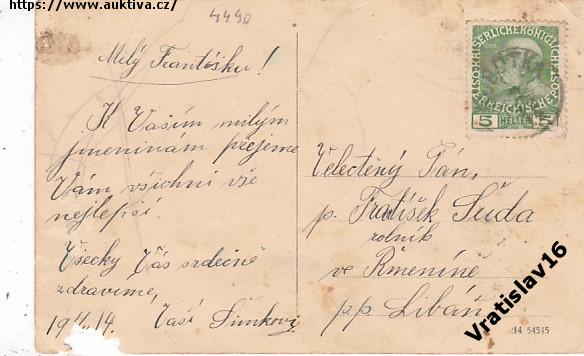 https://www.auktiva.cz/
4490
Milý Františku!
K Vašim milým
jmeninám přejeme
Vám všichni vše
nejlepší.
Všecky Vás srdečně
zdravíme,
Vaši Šimkovi
19 4/. 14.
KAISERLICHEKÖNIGLICHE
ÖSTERREICHISCHE POST
5 HELLER 5
Velectěný Pán,
p. František Šuda
rolník
ve Řmeníně
p. p. Libáň
14 54515
Vratislav16